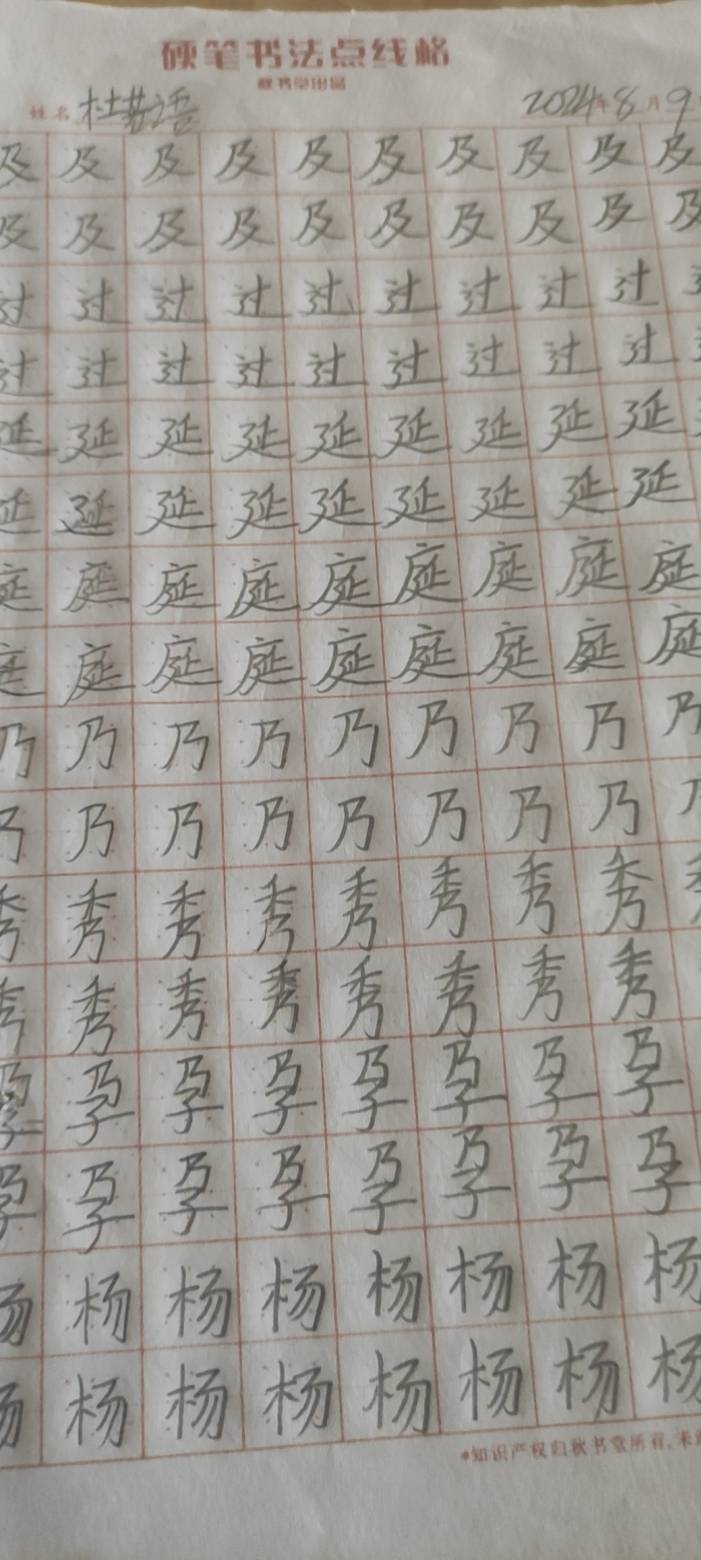 硬笔书法点线格
秋书堂出品
姓名 杜 语 2024年8月9
及及及及及及及及及及
及及及及及及及及及及
过过过过过过过过过
过过过过过过过过过
延延延延延延延延延
延延延延延延延延延
庭庭庭庭庭庭庭庭庭
庭庭庭庭庭庭庭庭庭
乃乃乃乃乃乃乃乃乃
乃乃乃乃乃乃乃乃乃
秀秀秀秀秀秀秀秀
秀秀秀秀秀秀秀秀
孕孕孕孕孕孕孕孕
孕孕孕孕孕孕孕孕
杨杨杨杨杨杨杨杨
杨杨杨杨杨杨杨杨
*知识产权归秋书堂所有,未